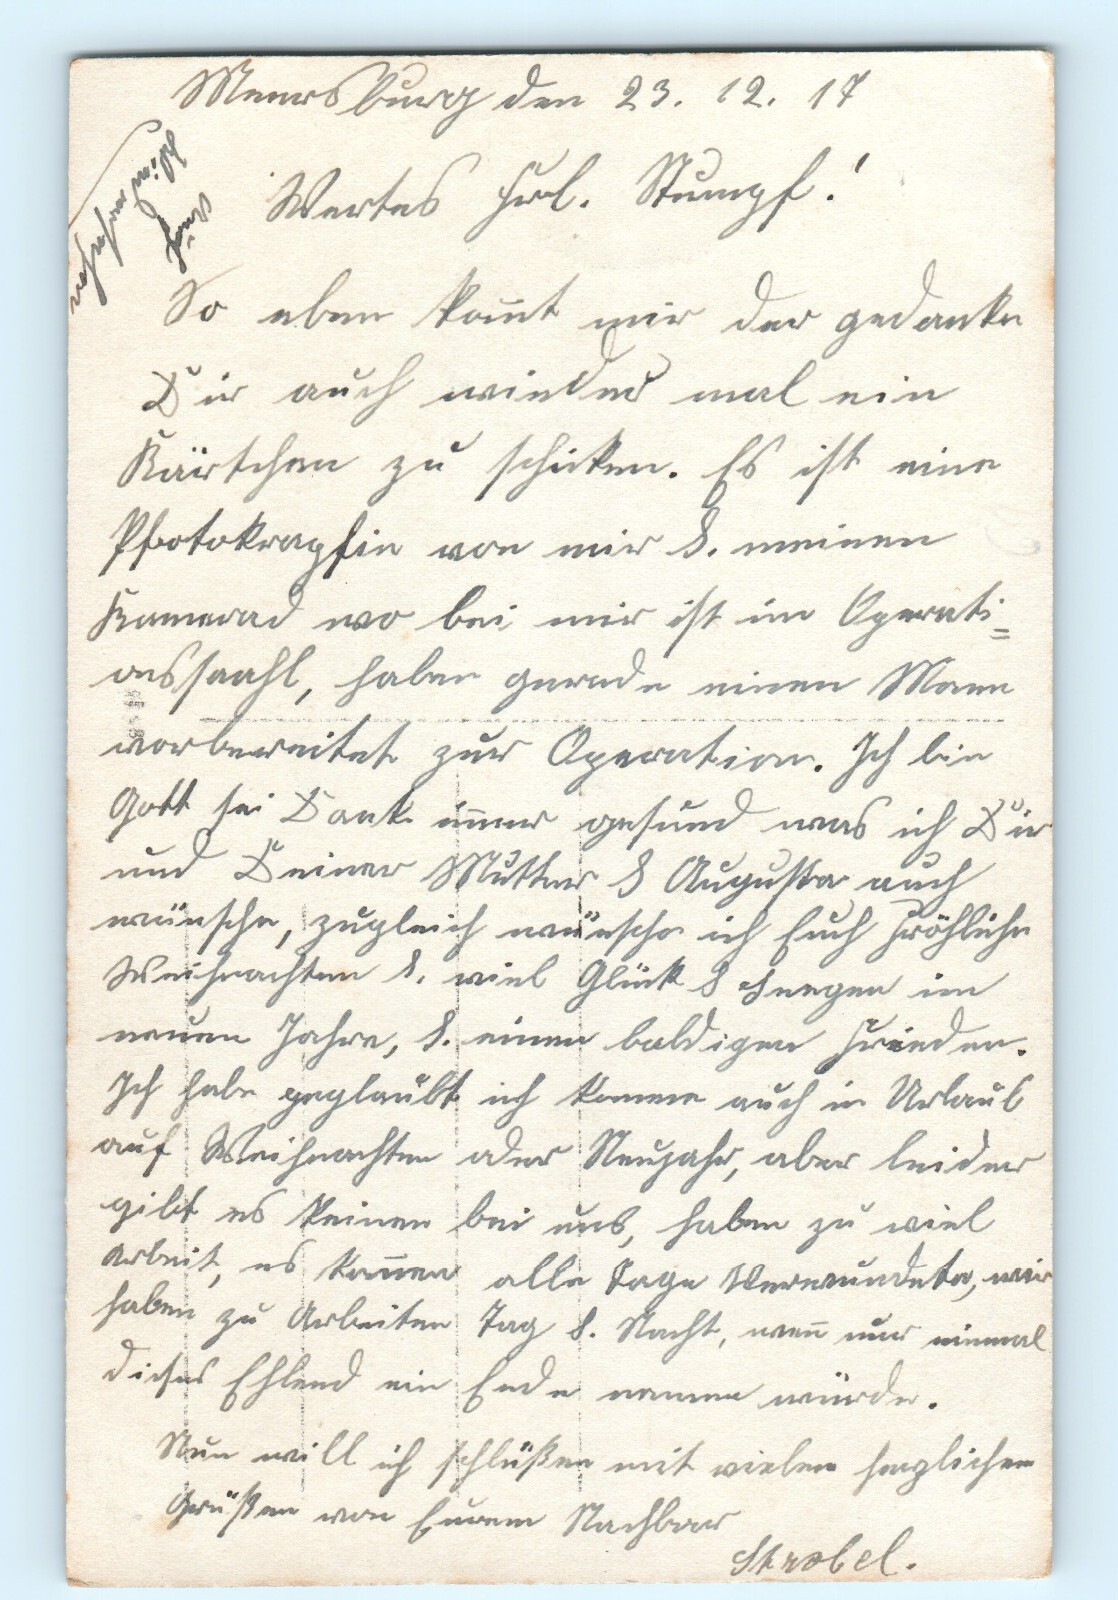 Meersburg den 23. 12. 17
Wertes Frl. Stumpf!
So eben kom̅t mir der gedanke
Dir auch wieder mal ein
Kärtchen zu schicken. Es ist eine
Pfotokrapfin von mir &. meinen
Kamerad wo bei mir ist im Operati=
onssaahl, haben gerade einen Mann
vorbereitet zur Operation. Ich bin
Gott sei Dank im̅er gesund was ich Dir
und Deiner Mutter & Augusta auch
wünsche, zugleich wünsche ich Euch Fröhliche
Weihnachten &. viel Glück & Seegen im
neuen Jahre, &. einen baldigen Frieden.
Ich habe geglaubt ich komme auch in Urlaub
auf Weihnachten oder Neujahr, aber leider
gibt es keinen bei uns, haben zu viel
Arbeit, es kom̅en alle Tage Verwundete, wir
haben zu Arbeiten Tag &. Nacht, wen̅ nur einmal
dieses Ehlend ein Ende nemen würde.
Nun will ich schlüßen mit vielen herzlichen
Grüßen von Eurem Nachbar
Strobel.